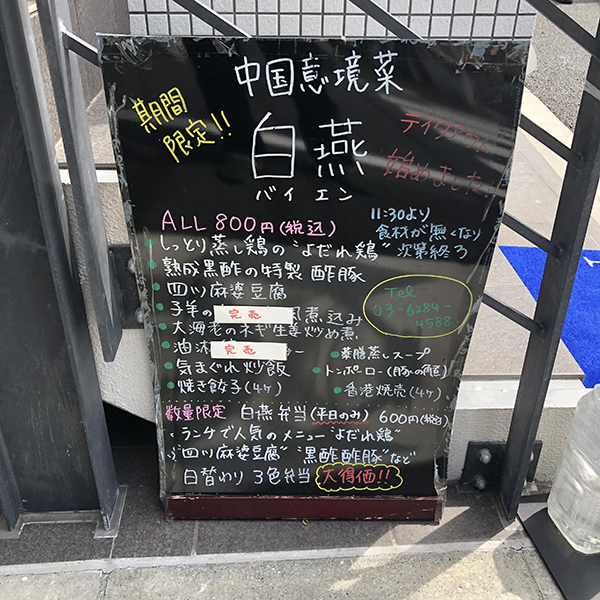 中国意境菜
期間
限定!!
白燕
バイエン
テイクアウト
始めました
ALL 800円(税込)
11:30より
食材が無くなり
次第終了
しっとり蒸し鶏の"よだれ鶏"
熟成黒酢の特製 酢豚
四川麻婆豆腐
Tel
03-6284-
4588
子羊の 完売 煮込み
大海老のネギ生姜炒め煮
油淋 完売
薬膳蒸しスープ
気まぐれ炒飯
トンポーロー(豚の角煮)
焼き餃子(4ヶ)
香港焼売(4ヶ)
数量限定 白燕弁当(平日のみ) 600円(税込)
ランチで人気のメニュー"よだれ鶏"
四川麻婆豆腐" "黒酢酢豚"など
日替わり 3色弁当 大得価!!